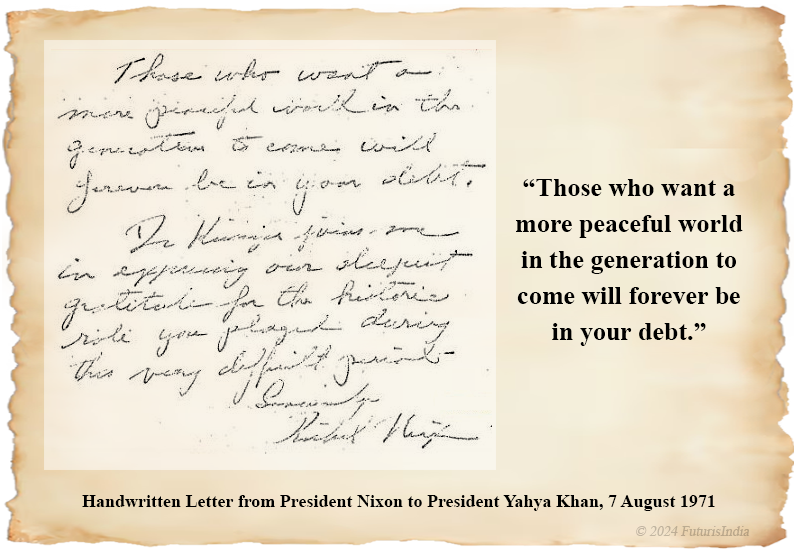 Those who want a
more peaceful world in the
generation to come will
forever be in your debt.
Dr Kissinger joins me
in expressing our deepest
gratitude for the historic
role you played during
this very difficult period
Sincerely
Richard Nixon
“Those who want a
more peaceful world
in the generation to
come will forever be
in your debt.”
Handwritten Letter from President Nixon to President Yahya Khan, 7 August 1971
© 2024 FuturisIndia